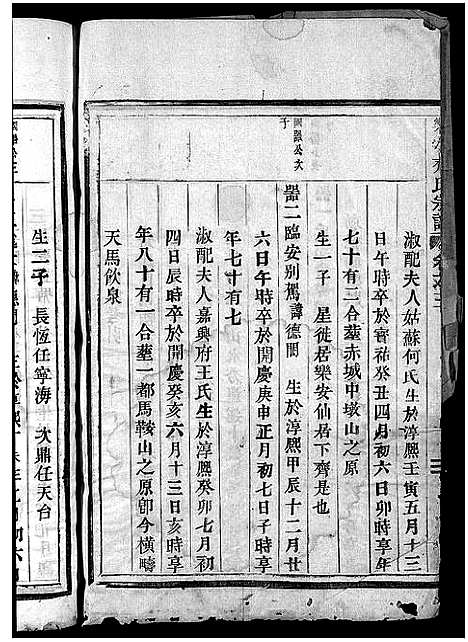 氏宗譜
淑配夫人姑蘇何氏生於淳熙壬寅五月十三
日午時卒於寶祐癸丑四月初六日卯時享年
七十有二合葬赤城中墩山之原
生一子 星徙居樂安仙居下齊是也
國器公次子
器二臨安別駕諱德閏 生於淳熙甲辰十二月廿
六日午時卒於開慶庚申正月初七日子時享
年七十有七
淑配夫人嘉興府王氏生於淳熙癸卯七月初
四日辰時卒於開慶癸亥六月十三日亥時享
年八十有一合葬一都馬鞍山之原卽今橫疇
天馬飲泉
生二子 長恆任寧海 次鼎任天台